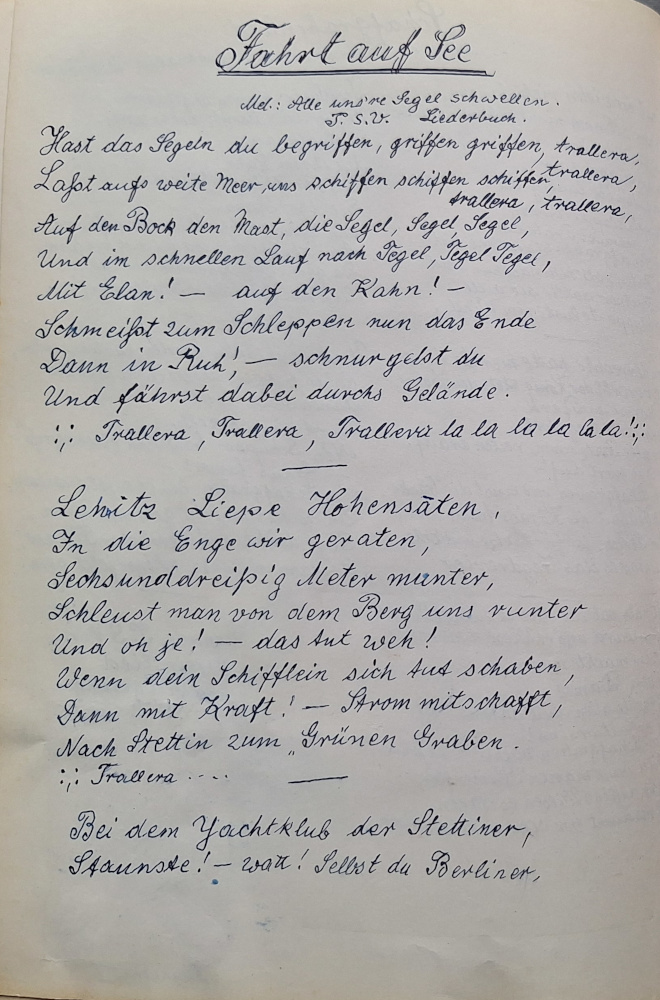 Fahrt auf See
Mel.: Alle uns're Segel schwellen.
T.S.V. Liederbuch.
Hast das Segeln du begriffen, griffen griffen, trallera,
Laßt aufs weite Meer uns schiffen schiffen schiffen trallera,
trallera, trallera,
Auf den Bock den Mast, die Segel, Segel, Segel,
Und im schnellen Lauf nach Tegel, Tegel Tegel,
Mit Elan! — auf den Kahn! —
Schmeißt zum Schleppen nun das Ende
Dann in Ruh', — schnurgelst du
Und fährst dabei durchs Gelände.
:,: Trallera, Trallera, Trallera la la la la la la! :,:
Lehnitz Liepe Hohensaten,
In die Enge wir geraten,
Sechsunddreißig Meter munter,
Schleust man von dem Berg uns runter
Und oh je! — das tut weh!
Wenn dein Schifflein sich tut schaben,
Dann mit Kraft! — Strom mitschafft,
Nach Stettin zum „Grünen Graben.
:,: Trallera ....
Bei dem Yachtklub der Stettiner,
Staunste! — watt! Selbst du Berliner,